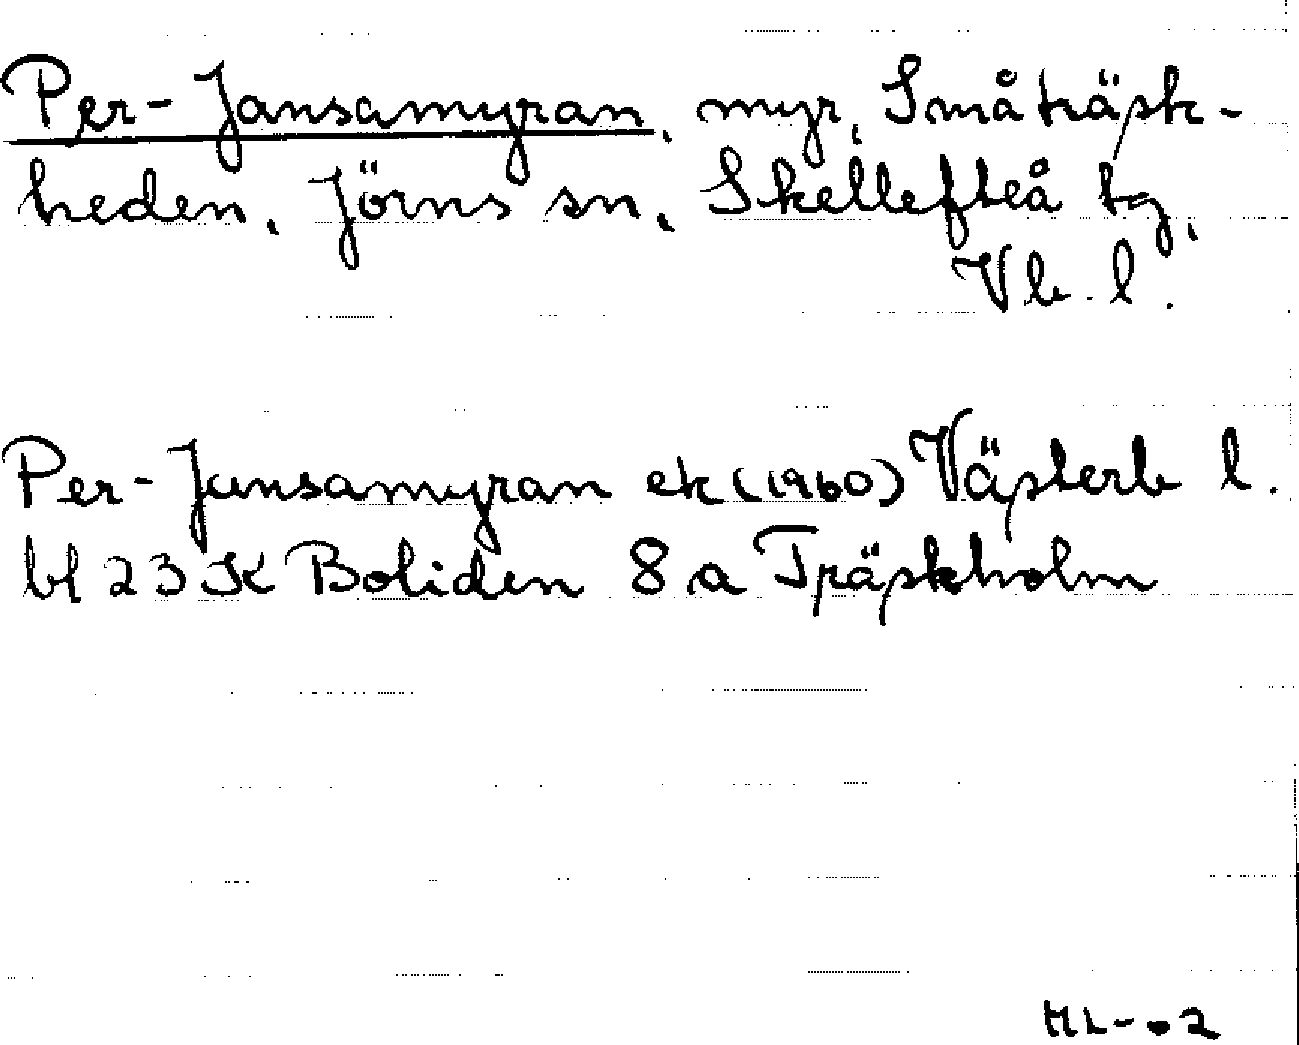 Per-Jansamyran, myr, Småträsk-
heden, Jörns sn, Skellefteå tg,
Vb. l.
Per-Jansamyran ek (1960) Västerb l.
bl 23 K Boliden 8 a Träskholm